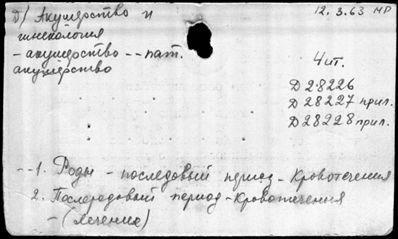 Д/ Акушерство и
12.3.63 МР
гинекология
- акушерство -- пат.
акушерство
Чит.
Д 28226
Д 28227 прил.
Д 28228 прил.
-- 1. Роды - последовый период - Кровотечения
2. Послеродовый период - Кровотечения
- (лечение)